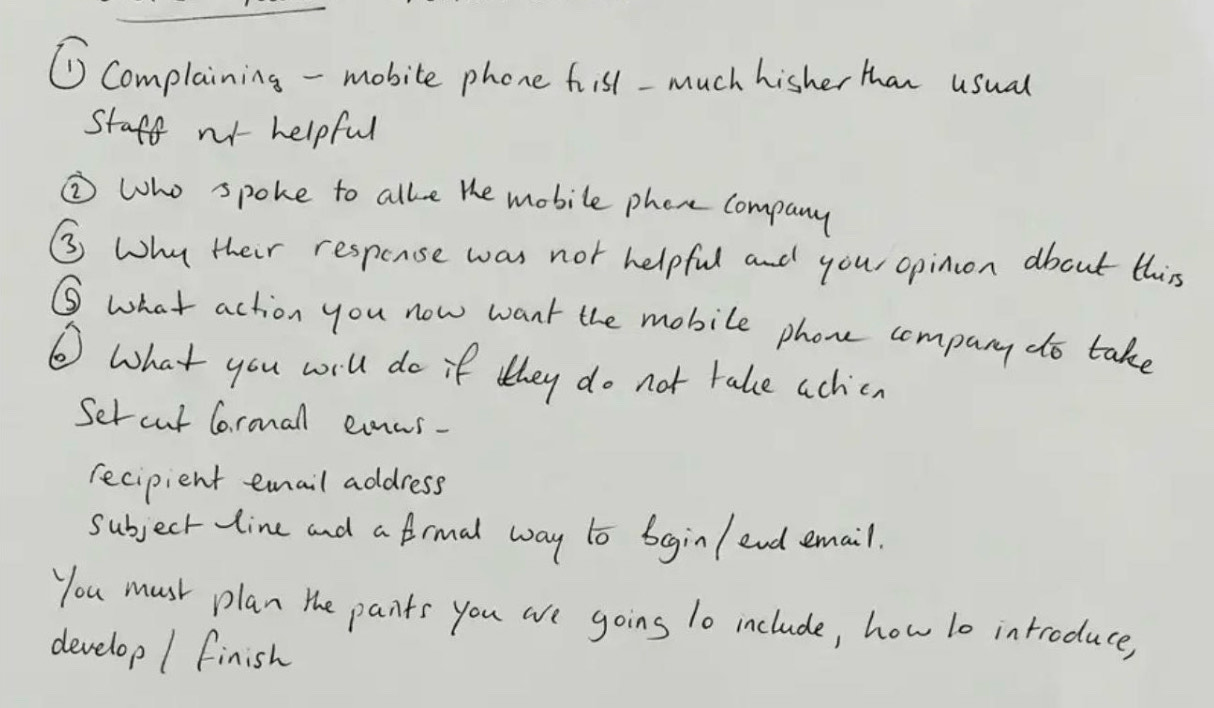 ① Complaining - mobile phone - much higher than usual
Staff not helpful
② Who spoke to the mobile phone company
③ Why their response was not helpful and your opinion about this
⑤ What action you now want the mobile phone company to take
⑥ What you will do if they do not take action
Set out
recipient email address
Subject line and a formal way to begin/end email.
You must plan the you are going to include, how to introduce,
develop / finish